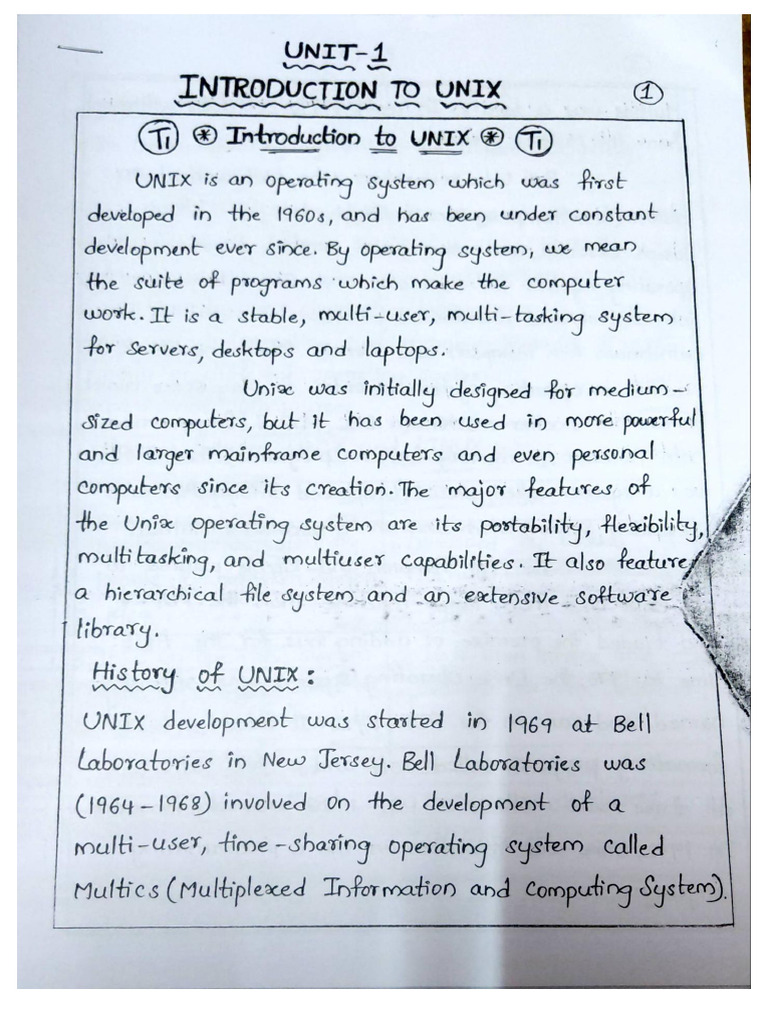 UNIT-1
INTRODUCTION TO UNIX
1
T1 * Introduction to UNIX * T1
UNIX is an operating system which was first
developed in the 1960s, and has been under constant
development ever since. By operating system, we mean
the suite of programs which make the computer
work. It is a stable, multi-user, multi-tasking system
for servers, desktops and laptops.
Unix was initially designed for medium-
sized computers, but it has been used in more powerful
and larger mainframe computers and even personal
computers since its creation. The major features of
the Unix operating system are its portability, flexibility,
multitasking, and multiuser capabilities. It also feature
a hierarchical file system and an extensive software
library.
History of UNIX :
UNIX development was started in 1969 at Bell
Laboratories in New Jersey. Bell Laboratories was
(1964-1968) involved on the development of a
multi-user, time-sharing operating system called
Multics (Multiplexed Information and Computing System).